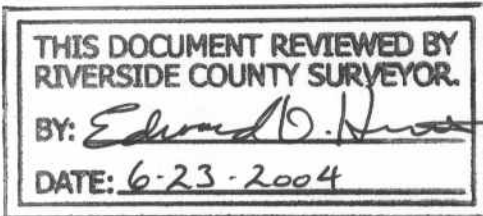 THIS DOCUMENT REVIEWED BY
RIVERSIDE COUNTY SURVEYOR.
BY: Edward D.
DATE: 6-23-2004